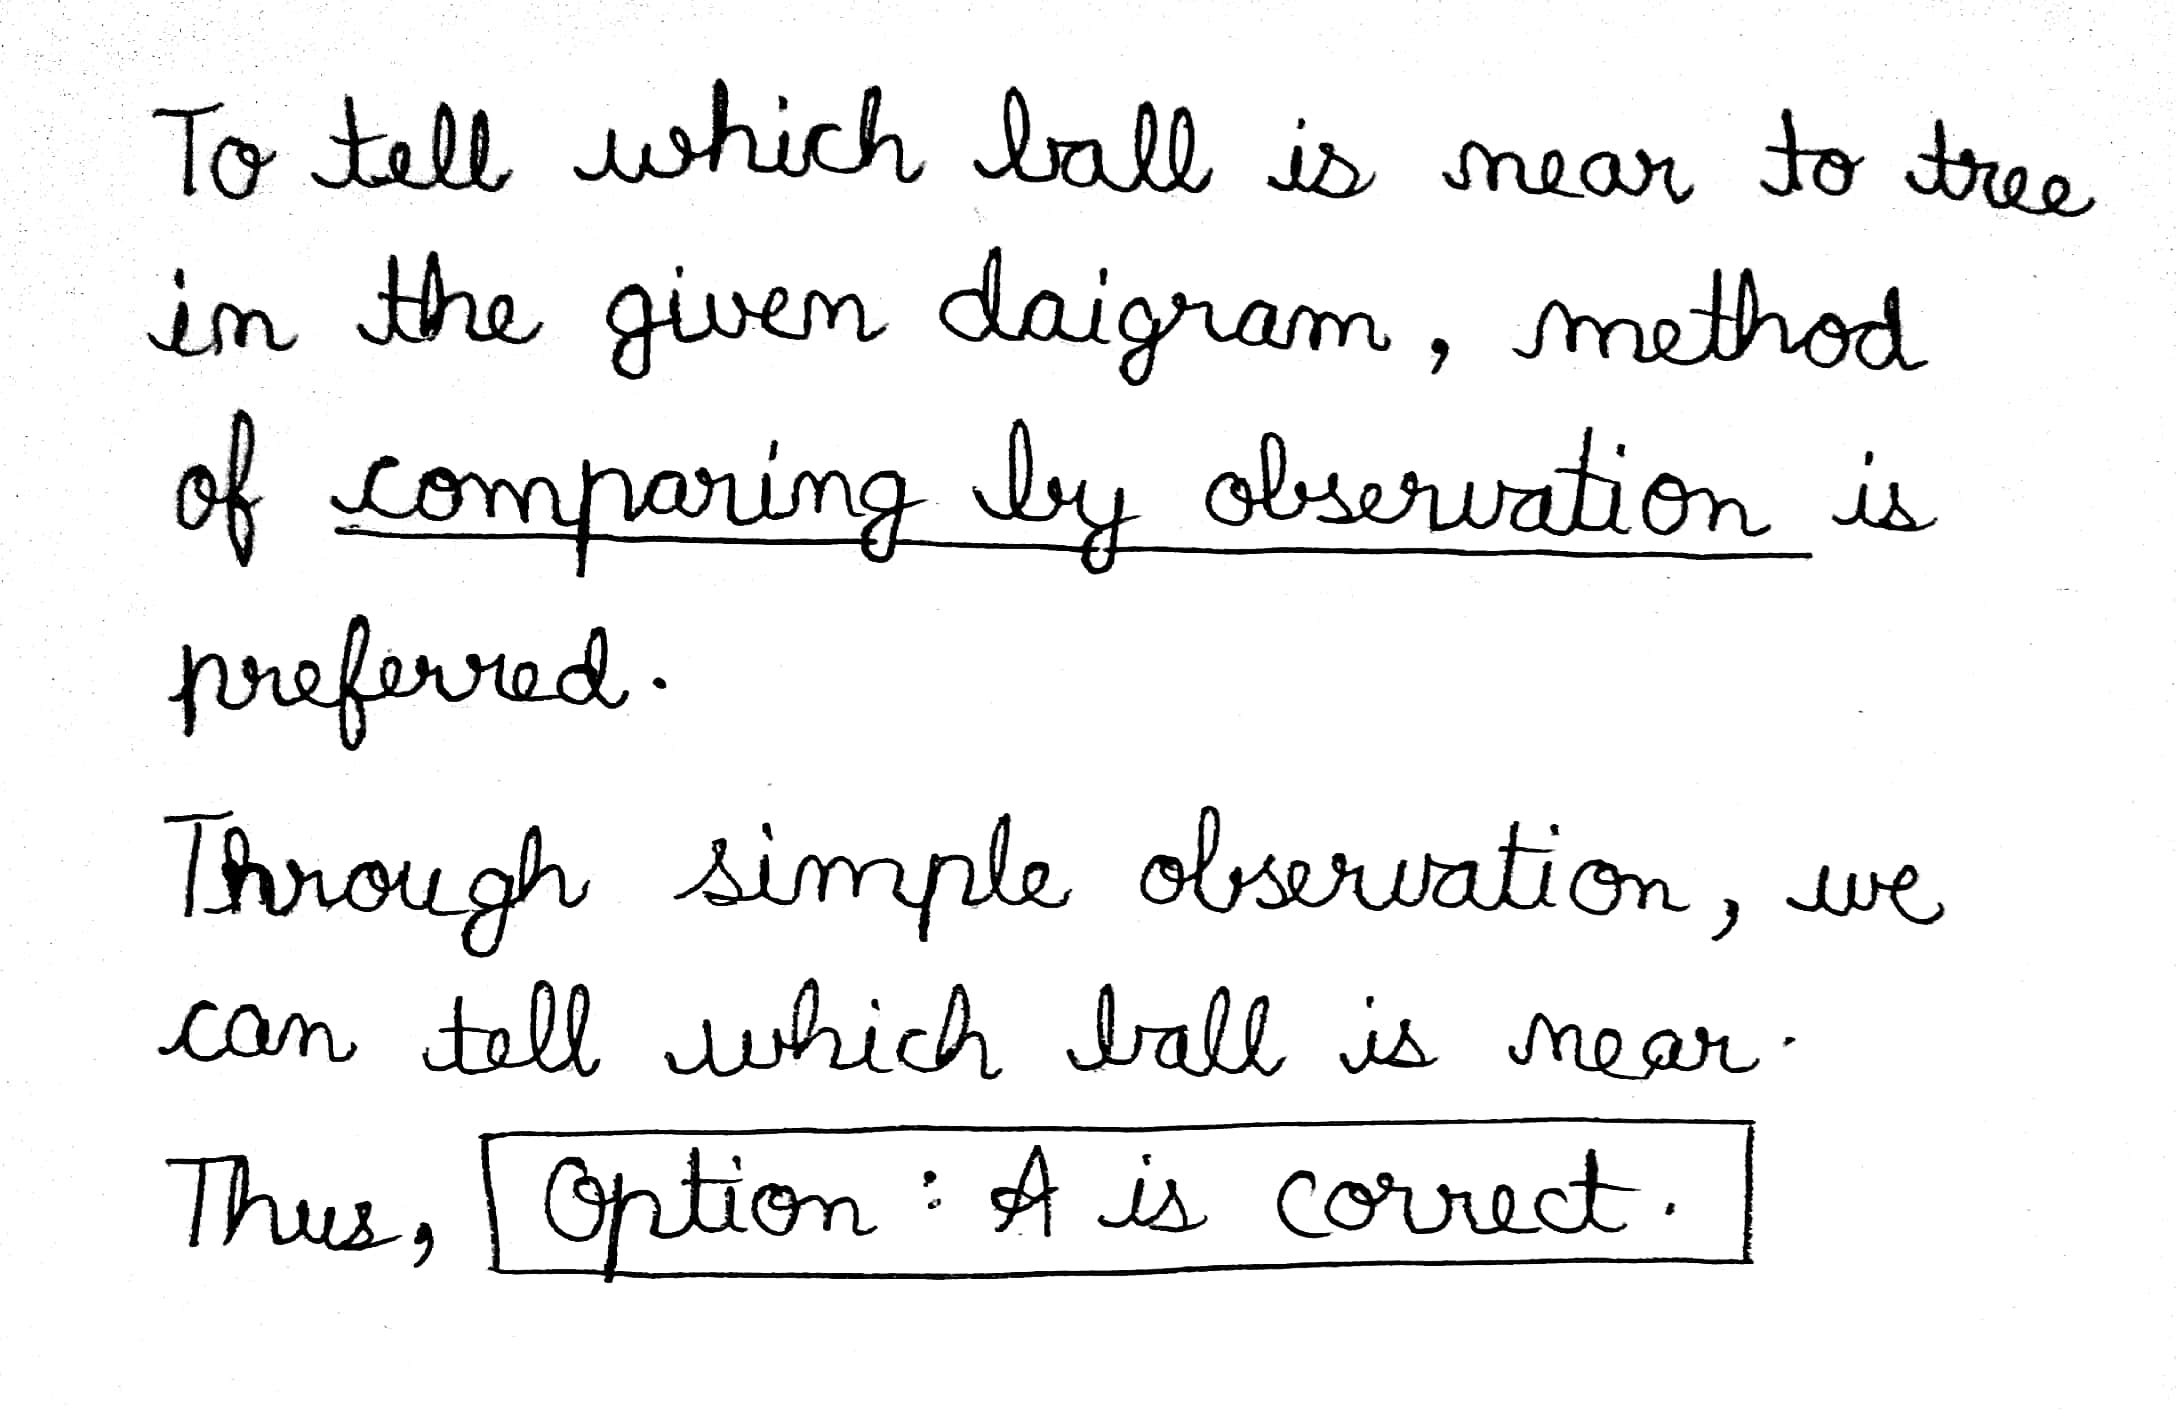 To tell which ball is near to tree
in the given daigram, method
of comparing by observation is
preferred.
Through simple observation, we
can tell which ball is near.
Thus, Option : A is correct.